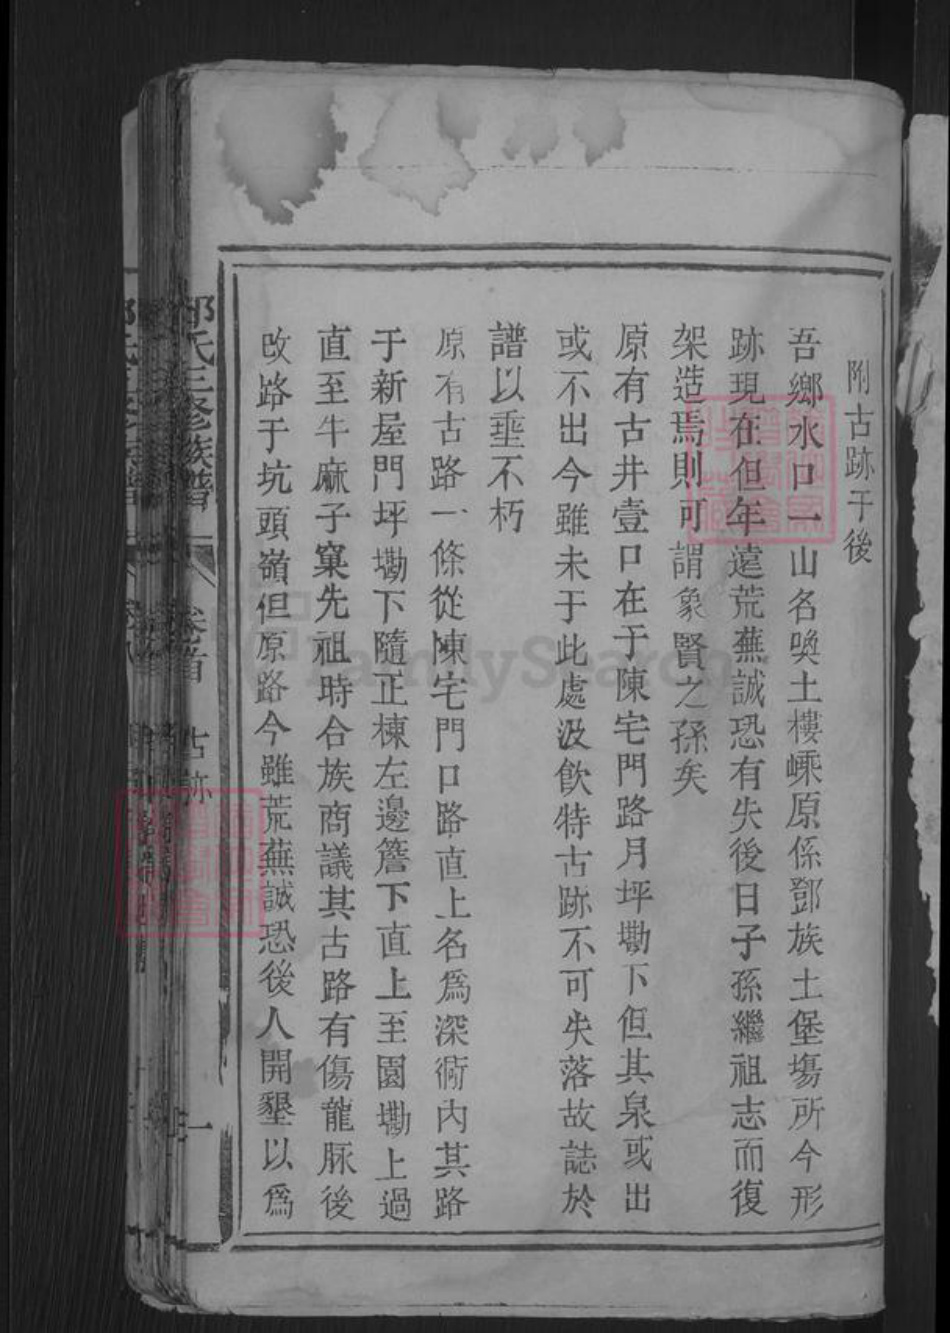 附古跡于後
吾鄉水口一山名喚土樓嵊原係鄧族土堡塲所今形
跡現在但年遠荒蕪誠恐有失後日子孫繼祖志而復
架造焉則可謂象賢之孫矣
原有古井壹口在于陳宅門路月坪墈下但其泉或出
或不出今雖未于此處汲飲特古跡不可失落故誌於
譜以垂不朽
原有古路一條從陳宅門口路直上名爲深衕內其路
于新屋門坪墈下隨正棟左邊簷下直上至園墈上過
直至牛麻子窠先祖時合族商議其古路有傷龍脉後
改路于坑頭嶺但原路今雖荒蕪誠恐後人開墾以爲
氏三修族譜
卷首
古跡
一
FamilySearch